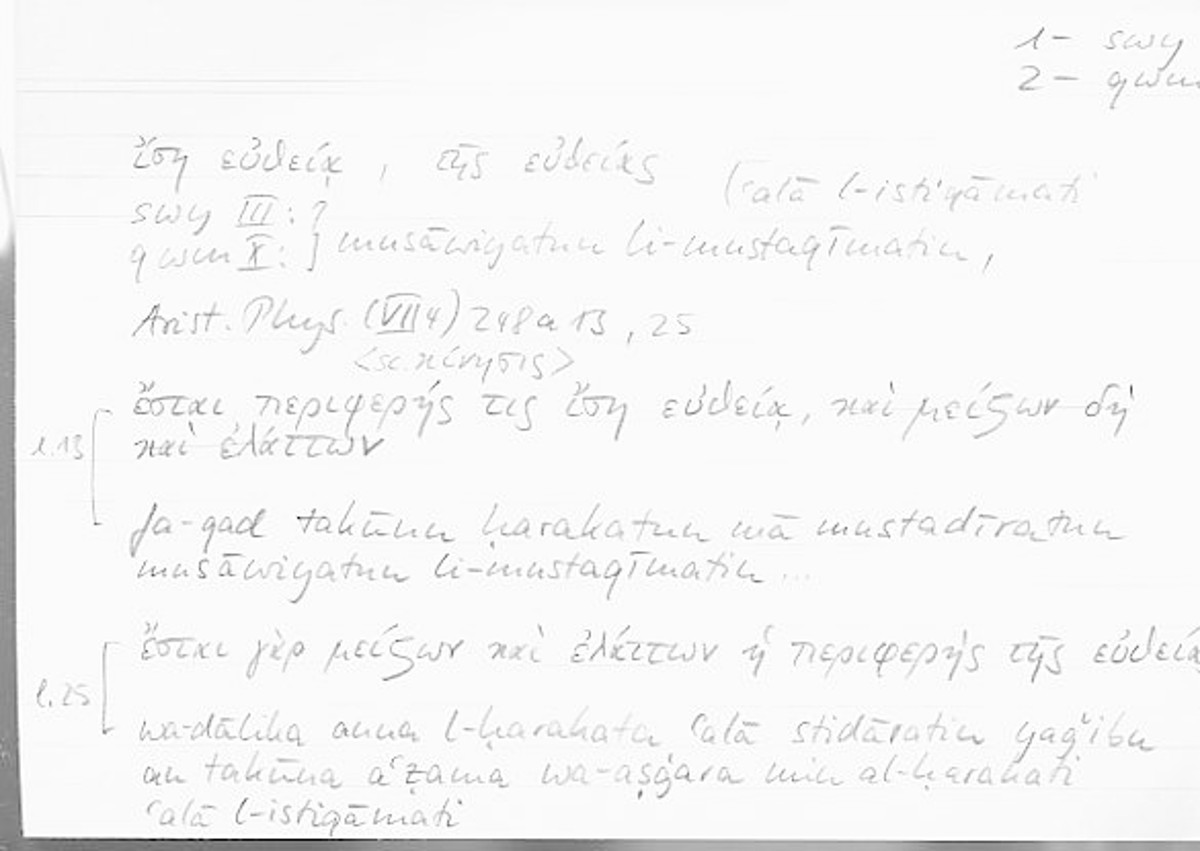 1 - swy
2 - qwm
ἴση εὐθείᾳ , τῆς εὐθείας (ʿalā l-istiqāmati
swy III : ?
qwm X : ] musāwiyatun li-mustaqīmatin,
Arist. Phys. (VII 4) 248 a 13 , 25
<sc. κίνησις>
ἔσται περιφερής τις ἴση εὐθείᾳ, καὶ μείζων δὴ
l.13 καὶ ἐλάττων
fa-qad takūnu ḥarakatun mā mustadīratun
musāwiyatun li-mustaqīmatin ...
ἔσται γὰρ μείζων καὶ ἐλάττων ἡ περιφερὴς τῆς εὐθείας
l.25
wa-ḏālika anna l-ḥarakata ʿalā stidāratin yaǧibu
an takūna aʿẓama wa-aṣġara min al-ḥarakati
ʿalā l-istiqāmati